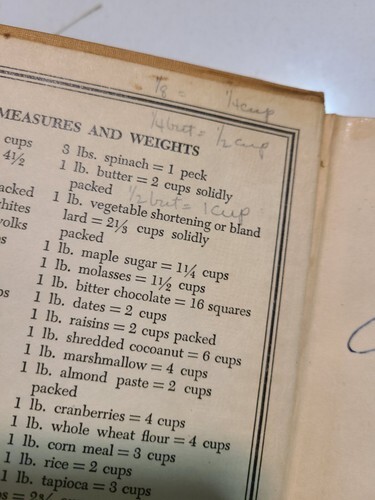 1/8 = 1/4 cup
1/4 butt = 1/2 cup
MEASURES AND WEIGHTS
cups
4½
3 lbs. spinach = 1 peck
1 lb. butter = 2 cups solidly
packed
1/2 butt = 1 cup
1 lb. vegetable shortening or bland
lard = 2⅓ cups solidly
packed
1 lb. maple sugar = 1¼ cups
1 lb. molasses = 1½ cups
1 lb. bitter chocolate = 16 squares
1 lb. dates = 2 cups
1 lb. raisins = 2 cups packed
1 lb. shredded cocoanut = 6 cups
1 lb. marshmallow = 4 cups
1 lb. almond paste = 2 cups
packed
1 lb. cranberries = 4 cups
1 lb. whole wheat flour = 4 cups
1 lb. corn meal = 3 cups
1 lb. rice = 2 cups
lb. tapioca = 3 cups